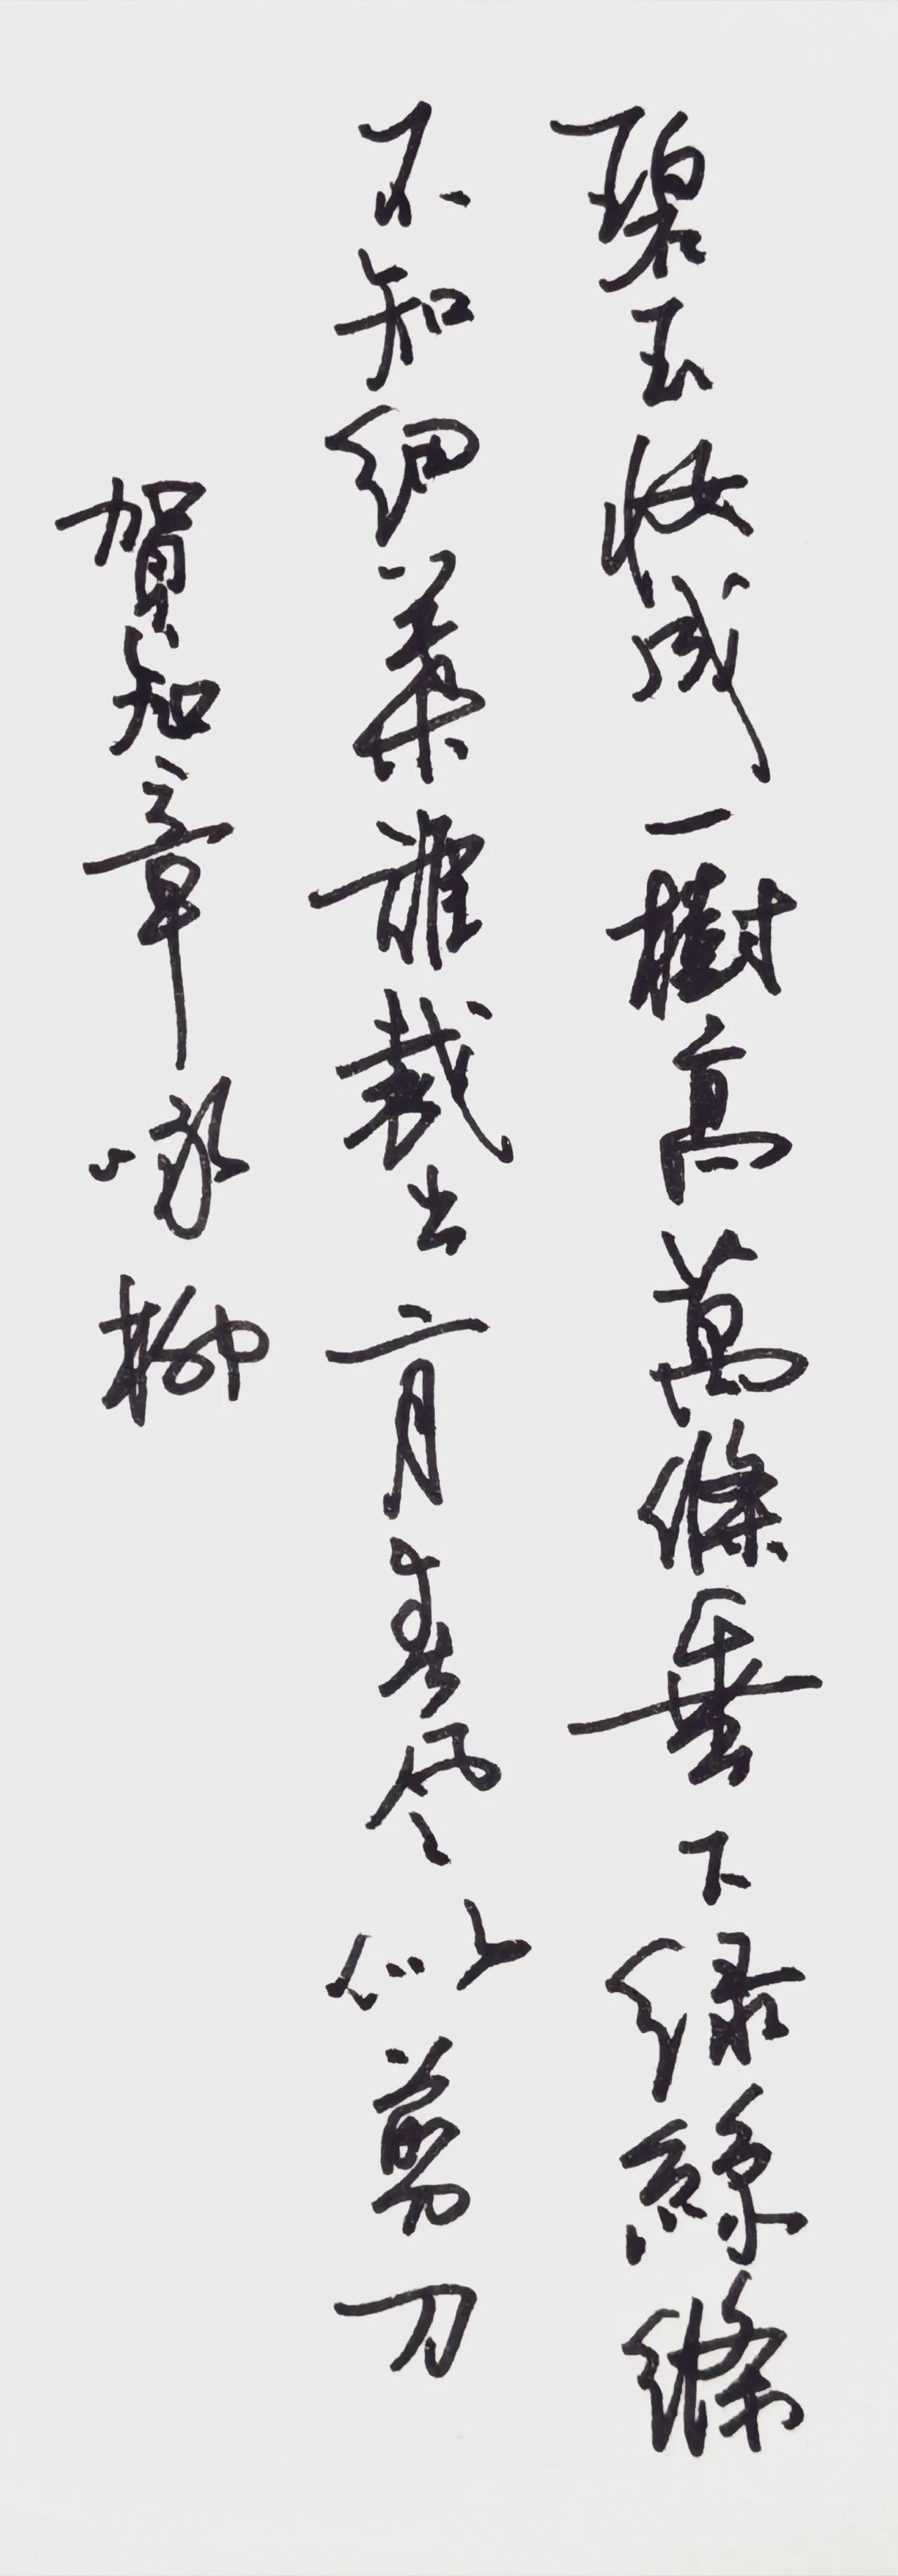 碧玉妝成一樹高萬條垂下绿絲絛
不知细葉誰裁出二月春风似剪刀
賀知章咏柳